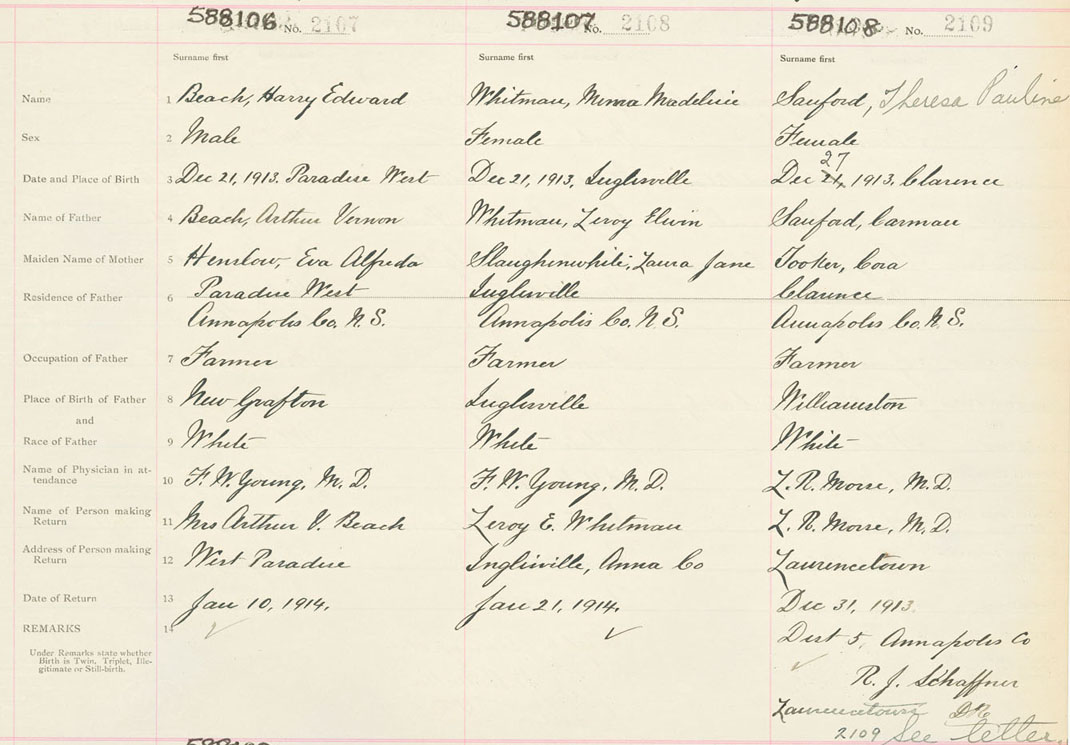 588106 No. 2107 588107 No. 2108 588108 No. 2109
Surname first Surname first Surname first
Name 1 Beach, Harry Edward Whitman, Minna Madeline Sanford, Theresa Pauline
Sex 2 Male Female Female
27
Date and Place of Birth 3 Dec 21, 1913. Paradise West Dec 21, 1913, Inglisville Dec 21, 1913, Clarence
Name of Father 4 Beach, Arthur Vernon Whitman, Leroy Elwin Sanford, Carman
Maiden Name of Mother 5 Henslow, Eva Alfreda Slaughenwhite, Laura Jane Tooker, Cora
Residence of Father 6 Paradise West Inglisville Clarence
Annapolis Co. N.S. Annapolis Co. N.S. Annapolis Co. N.S.
Occupation of Father 7 Farmer Farmer Farmer
Place of Birth of Father 8 New Grafton Inglisville Williamston
and
Race of Father 9 White White White
Name of Physician in at-
tendance 10 F. W. Young, M.D. F. W. Young, M.D. L. R. Morse, M.D.
Name of Person making
Return 11 Mrs Arthur V. Beach Leroy E. Whitman L. R. Morse, M.D.
Address of Person making
Return 12 West Paradise Inglisville, Anna Co Lawrencetown
Date of Return 13 Jan 10, 1914. Jan 21, 1914. Dec 31, 1913.
REMARKS 14 Dist 5, Annapolis Co
Under Remarks state whether
Birth is Twin, Triplet, Ille-
gitimate or Still-birth.
R. J. Schaffner
Lawrencetown DR
2109 See letter.